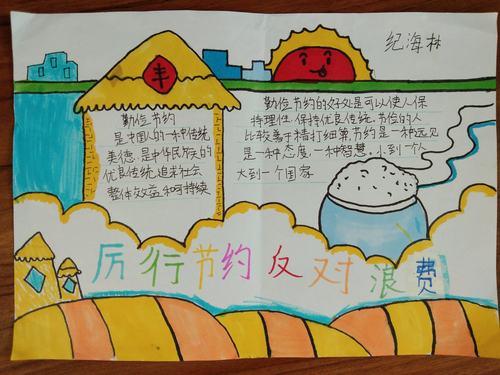 纪海林
丰
勤俭节约
是中国人的一种传统
美德.是中华民族的
优良传统.追求社会
整体效益和可持续
勤俭节约的好处是可以使人保
持理性.保持优良传统.节俭的人
比较善于精打细算.节约是一种远见
是一种态度.一种智慧.小到一个人
大到一个国家
厉行节约反对浪费